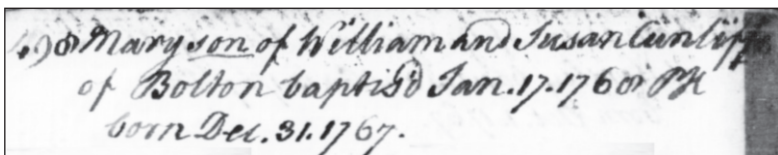 498 Mary son of William and Susan Cunliffe
of Bolton baptis'd Jan. 17. 1768 PH
born Dec. 31. 1767.